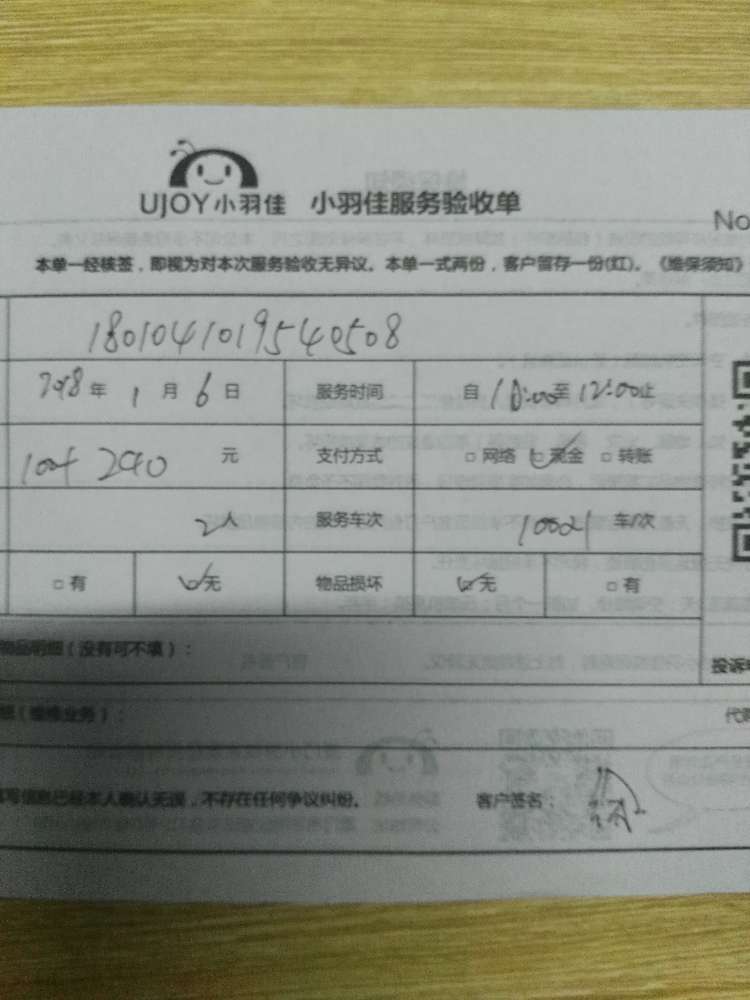 UJOY小羽佳 小羽佳服务验收单
No
本单一经核签，即视为对本次服务验收无异议。本单一式两份，客户留存一份(红)。《维保须知》
1801041019540508
2018年 1月6日 服务时间 自10:00至12:00止
100+240 元 支付方式 □网络 ☑现金 □转账
2人 服务车次 车/次
□有 ☑无 物品损坏 ☑无 □有
物品明细（没有可不填）：
投诉
（维修业务）：
写信息已经本人确认无误，不存在任何争议纠纷。 客户签名：